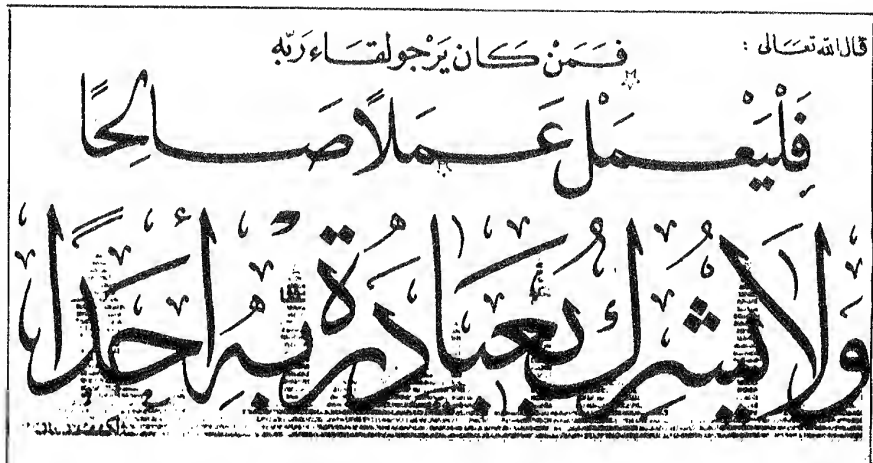 قال الله تعالى :
فَمَنْ كَان يَرْجو لقاء رَبّه
فَلْيَعْمَلْ عَمَلاً صَالِحًا
وَلا يُشْرِك بعِبَادَة رَبِّهِ أَحَدًا